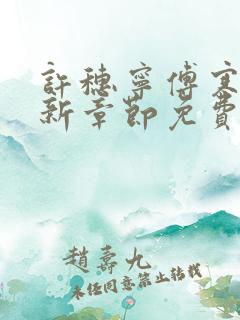 許穗寧傅寒
新章節免費
趙壽九
未經同意禁止轉載